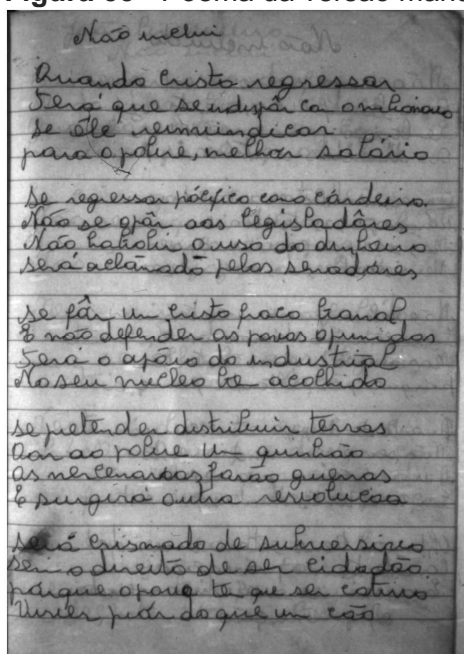 Poema da versão
Não inclui
Quando Cristo regressar
Terá que se indispôr o milionario
Se ele reinvindicar
para o pobre, melhor salário
se regressar pácifico como cárdeiro.
Não se opôr aos legisladôres
Não habolir o uso do dinheiro
será aclamado pelos senadores
se fôr um cristo fraco banal
E não defender os povos oprimidos
Terá o apôio do industrial
No seu nucleo be acolhido
se pretender distribuir terras
Dar ao pobre um quinhão
Os mercenarios farão guerras
E surgirá outra revolucao
será crismado de subversivo
sem o direito de ser cidadão
porque o povo te que ser cativo
Viver piór do que um cão